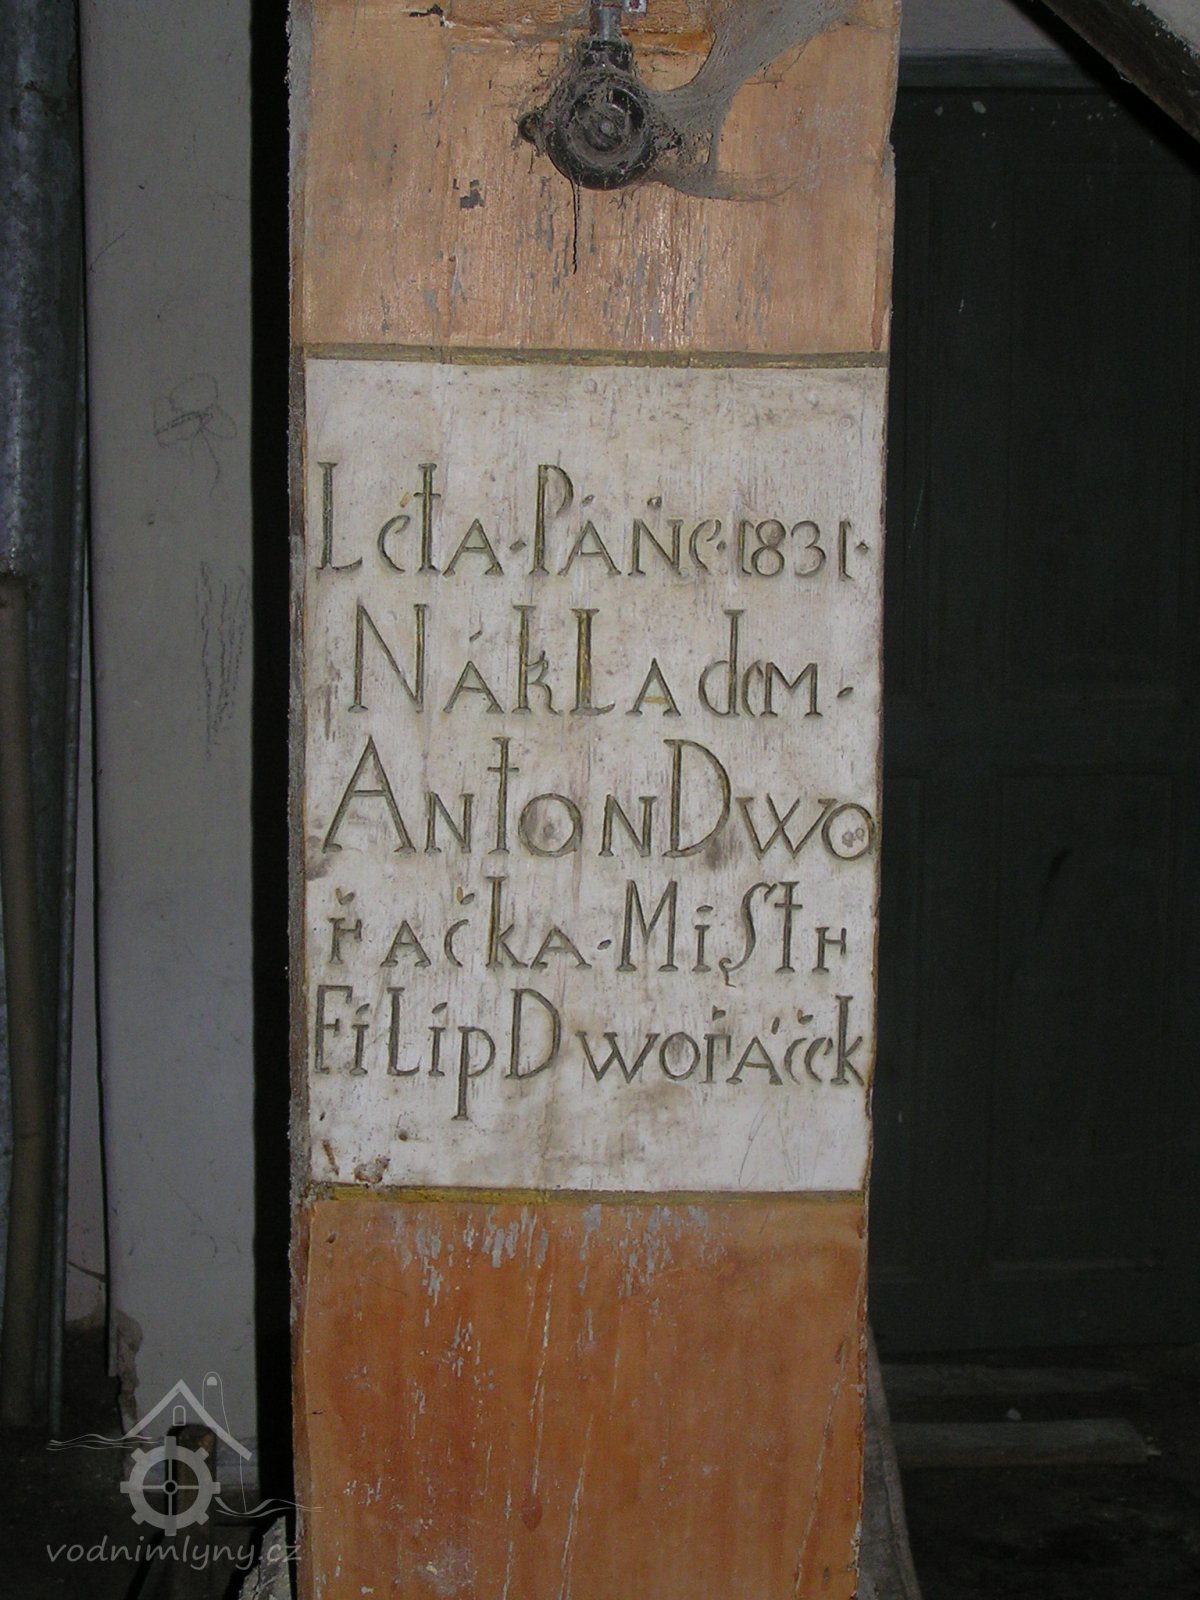 Léta·Páńe·1831·
Nákladem·
Anton Dwo
řačka·Mistr
Filip Dwořáček
vodnimlyny.cz